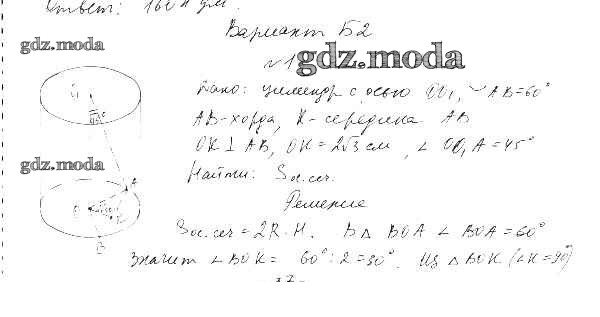 Ответ: 160π дм.
Вариант Б2
gdz.moda
№1
gdz.moda
Дано: цилиндр с осью OO₁, ◡AB=60°
AB-хорда, K-середина AB
OK⊥AB, OK=2√3 см, ∠OO₁A=45°
gdz.moda
Найти: Sос.сеч.
Решение
Sос.сеч=2R·H. В △BOA ∠BOA=60°
Значит ∠BOK= 60°:2=30°. Из △BOK (∠K=90°)
O₁
A
O
B